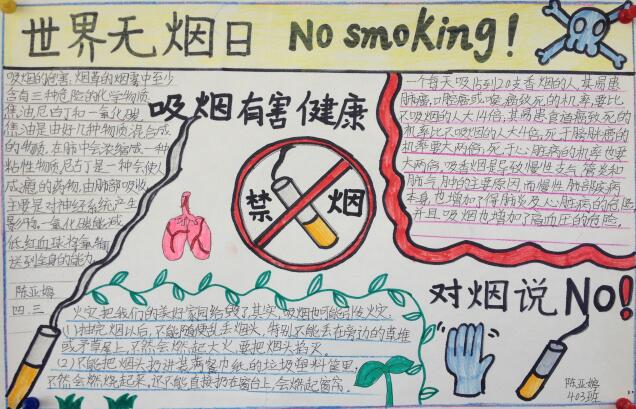 世界无烟日 No smoking!
吸烟的危害:烟草的烟雾中至少
含有三种危险的化学物质:
焦油,尼古丁和一氧化碳,
焦油是由好几种物质混合成
的物质,在肺中会浓缩成一种
粘性物质,尼古丁是一种会使人
成瘾的药物,由肺部吸收,
主要是对神经系统产生
影响。一氧化碳能减
低红血球将氧输
送到全身的能力
陈亚婷
四三
吸烟有害健康
禁烟
一个每天吸15到20支香烟的人,其易患
肺癌,口腔癌或喉癌致死的机率,要比
不吸烟的人大14倍,其易患食道癌致死的
机率比不吸烟的人大4倍,死于膀胱癌的
机率要大两倍,死于心脏病的机率也要
大两倍,吸香烟是导致慢性支气管炎和
肺气肿的主要原因,而慢性肺部疾病
本身,也增加了得肺炎及心脏病的危险
并且吸烟也增加了高血压的危险。
火灾把我们的美好家园给毁了其实,吸烟也可能引发火灾.
(1)抽完烟以后,不能随便乱丢烟头,特别不能丢在旁边的草堆
或茅草屋上,不然会燃起大火,要把烟头掐灭。
(2)不能把烟头扔进装有废纸的垃圾塑料筐里,
不然会燃烧起来,还不能直接扔在窗台上,会燃起窗帘。
对烟说NO!
陈亚婷
403班